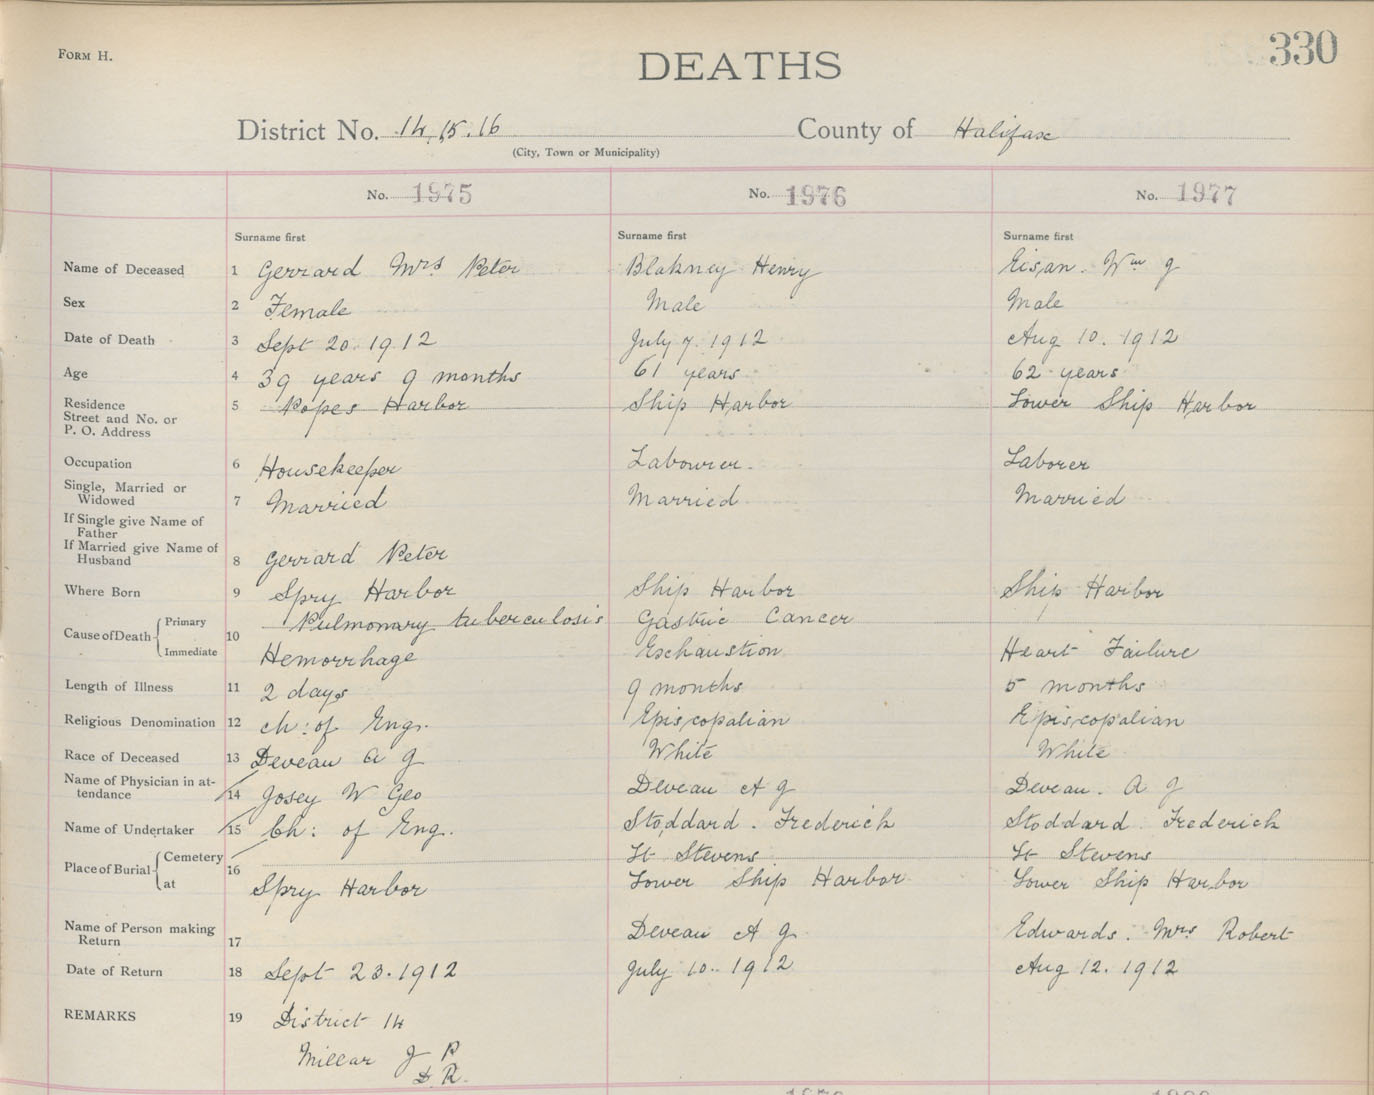 FORM H.
DEATHS
330
District No. 14, 15, 16 County of Halifax
(City, Town or Municipality)
No. 1975 No. 1976 No. 1977
Surname first Surname first Surname first
Name of Deceased 1 Gerrard Mrs Peter Blakney Henry Eisan. Wm J
Sex 2 Female Male Male
Date of Death 3 Sept 20. 1912 July 7. 1912 Aug 10. 1912
Age 4 39 years 9 months 61 years 62 years
Residence 5 Popes Harbor Ship Harbor Lower Ship Harbor
Street and No. or
P. O. Address
Occupation 6 Housekeeper Labourer. Laborer
Single, Married or
Widowed 7 Married Married Married
If Single give Name of
Father
If Married give Name of
Husband 8 Gerrard Peter
Where Born 9 Spry Harbor Ship Harbor Ship Harbor
Cause of Death 10 Primary Pulmonary tuberculosis Gastric Cancer
Immediate Hemorrhage Exchaustion Heart Failure
Length of Illness 11 2 days 9 months 5 months
Religious Denomination 12 Ch: of Eng. Episcopalian Episcopalian
Race of Deceased 13 Deveau A J White White
Name of Physician in at-
tendance 14 Josey W Geo Deveau A J Deveau. A J
Name of Undertaker 15 Ch: of Eng. Stoddard. Frederick Stoddard Frederick
Place of Burial 16 Cemetery St Stevens St Stevens
at Spry Harbor Lower Ship Harbor Lower Ship Harbor
Name of Person making
Return 17 Deveau A J Edwards. Mrs Robert
Date of Return 18 Sept 23. 1912 July 10. 1912 Aug 12. 1912
REMARKS 19 District 14
Millar J P
D. R.